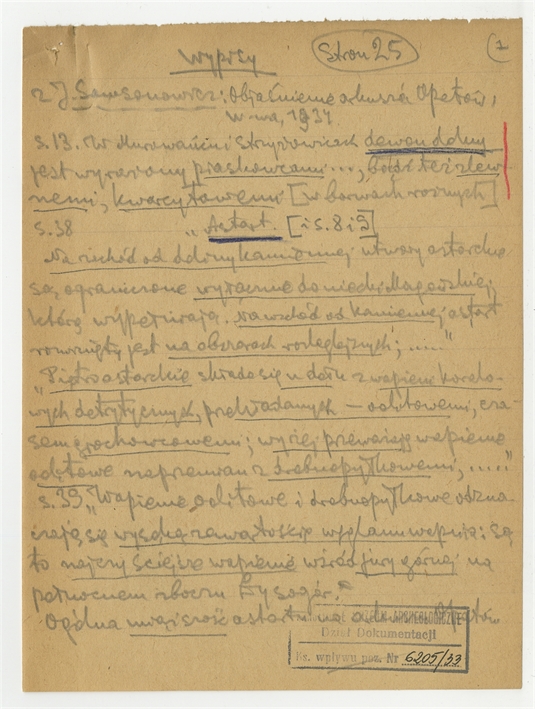 Wypisy
Stron 25
1
z J. Samsonowicz: Objaśnienie arkusza Opatów,
W-wa, 1934.
s. 13. W i Stryczowicach dewon dolny
jest wyrażony piaskowcami ..., bądź też zlew-
nemi, kwarcytowemi [w barwach różnych]
s. 38 „Astart. [i s. 8 i 9]
Na zachód od doliny Kamiennej utwory astarckie
są ograniczone wyłącznie do niecki Magońskiej,
którą wypełniają. Na wschód od Kamiennej astart
rozwinięty jest na obszarach rozleglejszych; ....."
„Piętro astarckie składa się w dole z wapieni koralo-
wych detrytycznych, przekładanych — oolitowemi, cza-
sem gruchowcowemi; wyżej przeważają wapienie
oolitowe naprzemian z drobnopytkowemi, ....."
s. 39 „Wapienie oolitowe i drobnopytkowe odzna-
czają się wysoką zawartością węglanu wapnia: są
to najczyściejsze wapienie wśród jury górnej na
północnem zboczu Łysogór."
Ogólna miąższość astartu na ark. Opatów
ARCHEOLOGICZNE
Dział Dokumentacji
Ks. wpływu poz. Nr 6205/33